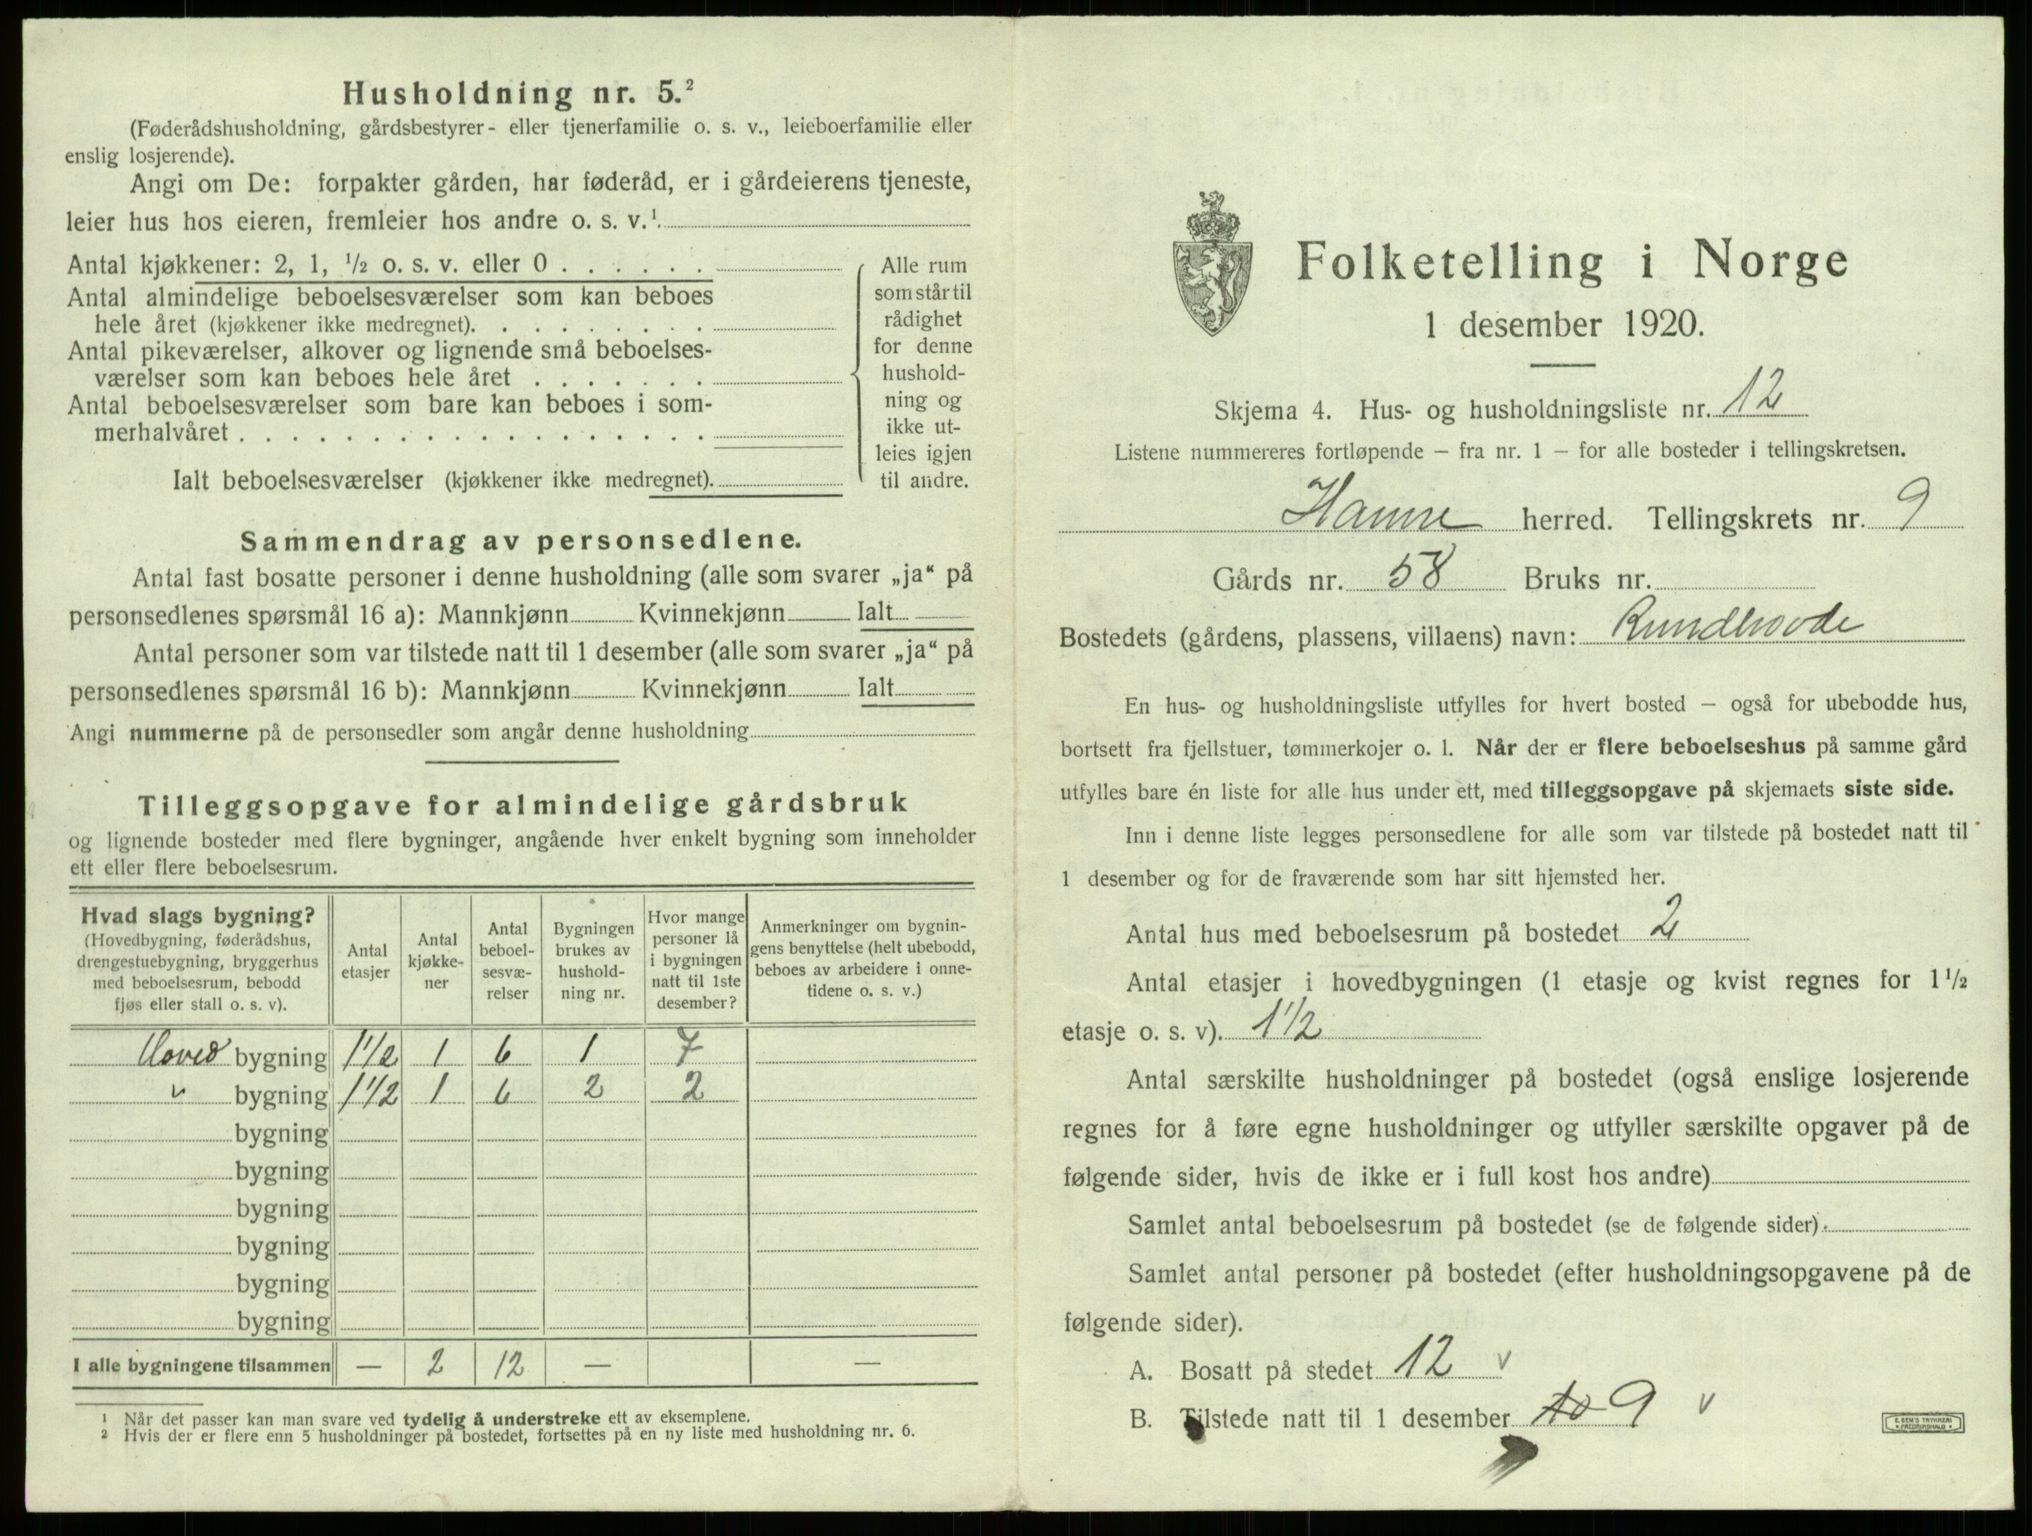 Husholdning nr. 5.²
(Føderådshusholdning, gårdsbestyrer- eller tjenerfamilie o. s. v., leieboerfamilie eller
enslig losjerende).
Angi om De: forpakter gården, har føderåd, er i gårdeierens tjeneste,
leier hus hos eieren, fremleier hos andre o. s. v.¹
Antal kjøkkener: 2, 1, ½ o. s. v. eller 0
Antal almindelige beboelsesværelser som kan beboes
hele året (kjøkkener ikke medregnet).
Antal pikeværelser, alkover og lignende små beboelses-
værelser som kan beboes hele året
Antal beboelsesværelser som bare kan beboes i som-
merhalvåret
Ialt beboelsesværelser (kjøkkener ikke medregnet).
Alle rum
som står til
rådighet
for denne
hushold-
ning og
ikke ut-
leies igjen
til andre.
Sammendrag av personsedlene.
Antal fast bosatte personer i denne husholdning (alle som svarer „ja“ på
personsedlenes spørsmål 16 a): Mannkjønn Kvinnekjønn Ialt
Antal personer som var tilstede natt til 1 desember (alle som svarer „ja“ på
personsedlenes spørsmål 16 b): Mannkjønn Kvinnekjønn Ialt
Angi nummerne på de personsedler som angår denne husholdning
Tilleggsopgave for almindelige gårdsbruk
og lignende bosteder med flere bygninger, angående hver enkelt bygning som inneholder
ett eller flere beboelsesrum.
Hvad slags bygning?
(Hovedbygning, føderådshus,
drengestuebygning, bryggerhus
med beboelsesrum, bebodd
fjøs eller stall o. s. v).
Antal
etasjer
Antal
kjøkke-
ner
Antal
beboel-
sesvæ-
relser
Bygningen
brukes av
hushold-
ning nr.
Hvor mange
personer lå
i bygningen
natt til 1ste
desember?
Anmerkninger om bygnin-
gens benyttelse (helt ubebodd,
beboes av arbeidere i onne-
tidene o. s. v.)
Hoved bygning 1½ 1 6 1 7
" bygning 1½ 1 6 2 2
bygning
bygning
bygning
bygning
bygning
bygning
I alle bygningene tilsammen — 2 12 — —
¹ Når det passer kan man svare ved tydelig å understreke ett av eksemplene.
² Hvis der er flere enn 5 husholdninger på bostedet, fortsettes på en ny liste med husholdning nr. 6.
Folketelling i Norge
1 desember 1920.
Skjema 4. Hus- og husholdningsliste nr. 12
Listene nummereres fortløpende – fra nr. 1 – for alle bosteder i tellingskretsen.
Hamre herred. Tellingskrets nr. 9
Gårds nr. 58 Bruks nr.
Bostedets (gårdens, plassens, villaens) navn: Rundhovde
En hus- og husholdningsliste utfylles for hvert bosted – også for ubebodde hus,
bortsett fra fjellstuer, tømmerkojer o. l. Når der er flere beboelseshus på samme gård
utfylles bare én liste for alle hus under ett, med tilleggsopgave på skjemaets siste side.
Inn i denne liste legges personsedlene for alle som var tilstede på bostedet natt til
1 desember og for de fraværende som har sitt hjemsted her.
Antal hus med beboelsesrum på bostedet 2
Antal etasjer i hovedbygningen (1 etasje og kvist regnes for 1½
etasje o. s. v). 1½
Antal særskilte husholdninger på bostedet (også enslige losjerende
regnes for å føre egne husholdninger og utfyller særskilte opgaver på de
følgende sider, hvis de ikke er i full kost hos andre)
Samlet antal beboelsesrum på bostedet (se de følgende sider)
Samlet antal personer på bostedet (efter husholdningsopgavene på de
følgende sider).
A. Bosatt på stedet 12 v
B. Tilstede natt til 1 desember 9 v